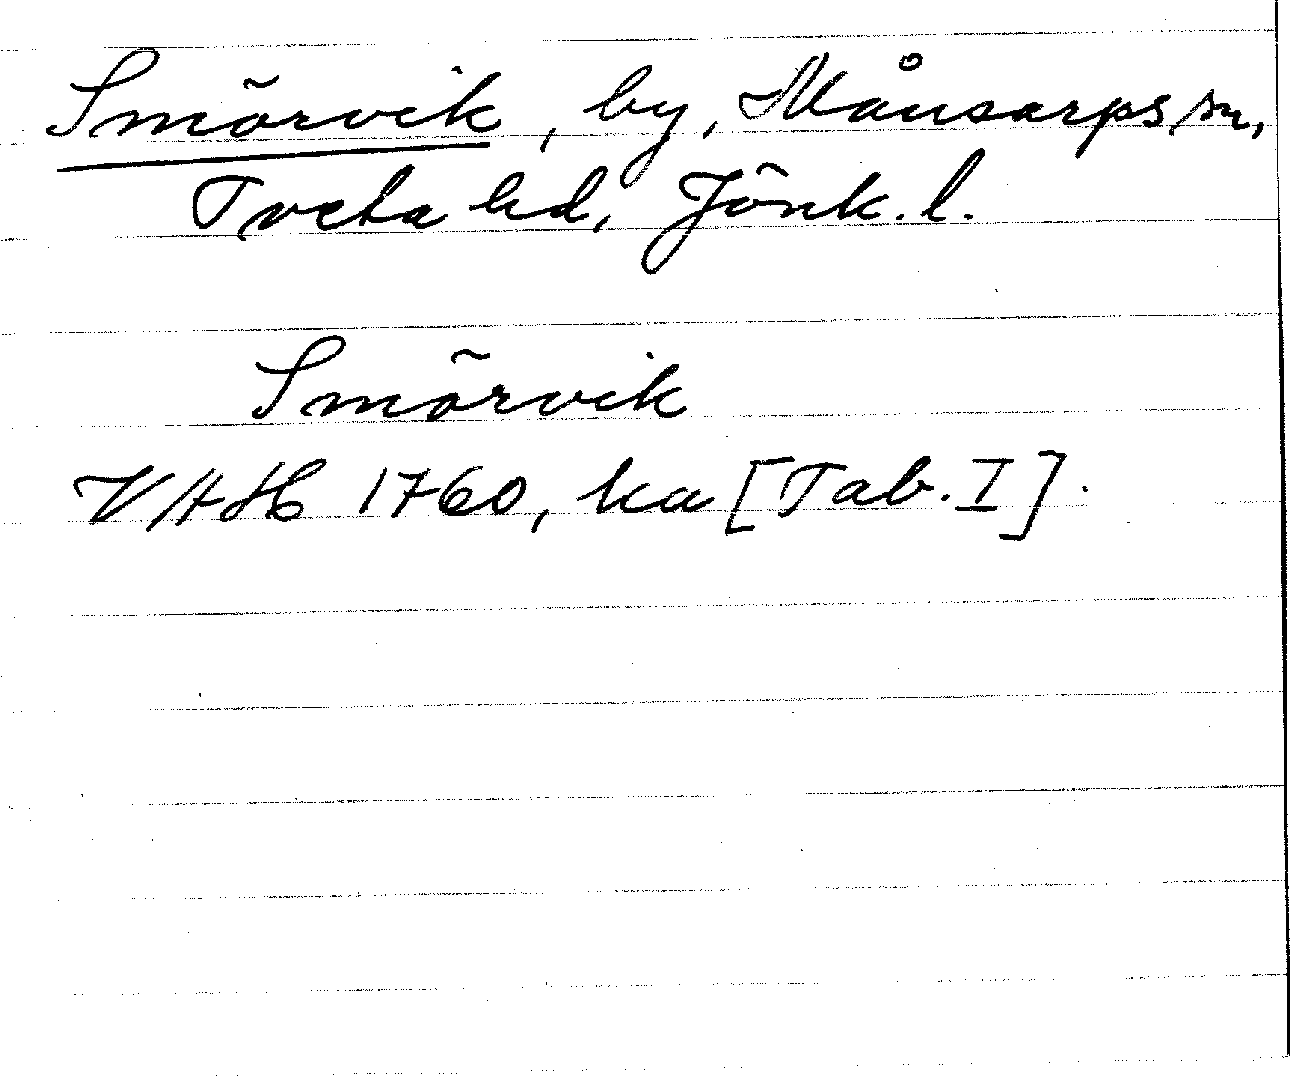 Smörvik, by, Månsarps sn,
Tveta hd, Jönk. l.
Smörvik
VAH 1760, ka [Tab. I].